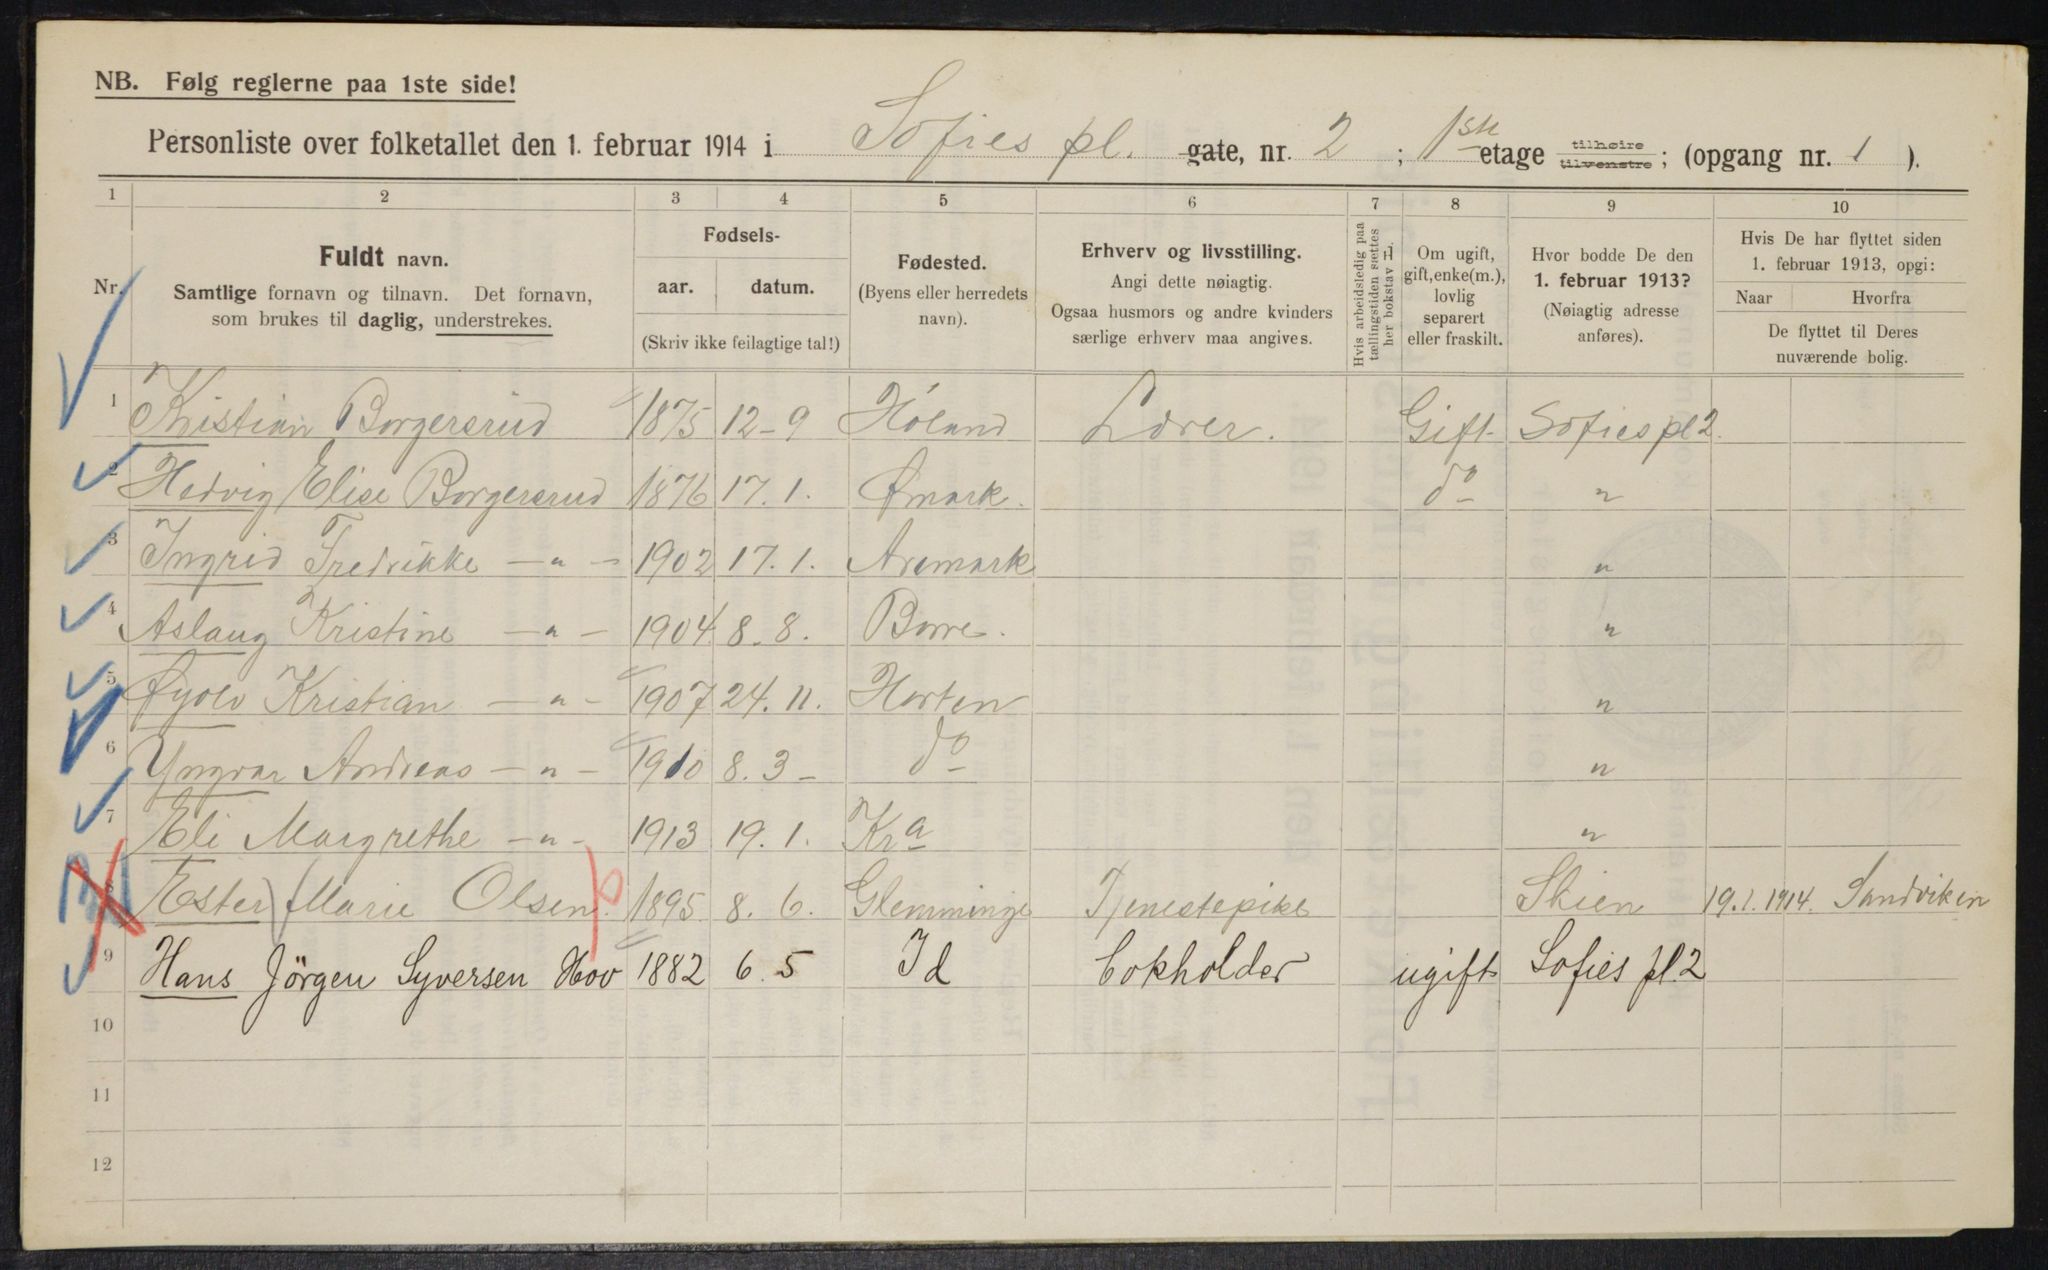 NB. Følg reglerne paa 1ste side!
Personliste over folketallet den 1. februar 1914 i Sofies pl. gate, nr. 2 ; 1ste etage tilhøire tilvenstre ; (opgang nr. 1 ).
1 2 3 4 5 6 7 8 9 10
Nr.
Fuldt navn.
Samtlige fornavn og tilnavn. Det fornavn,
som brukes til daglig, understrekes.
Fødsels-
aar. datum.
(Skriv ikke feilagtige tal!)
Fødested.
(Byens eller herredets
navn).
Erhverv og livsstilling.
Angi dette nøiagtig.
Ogsaa husmors og andre kvinders
særlige erhverv maa angives.
Hvis arbeidsledig paa
tællingstiden sættes
her bokstav L
Om ugift,
gift, enke(m.),
lovlig
separert
eller fraskilt.
Hvor bodde De den
1. februar 1913?
(Nøiagtig adresse
anføres).
Hvis De har flyttet siden
1. februar 1913, opgi:
Naar Hvorfra
De flyttet til Deres
nuværende bolig.
1 Kristian Borgersrud 1875 12-9 Høland Lærer. Gift Sofies pl 2.
2 Hedvig Elise Borgersrud 1876 17.1. Ømark. do "
3 Ingrid Fredrikke — " — 1902 17.1. Aremark "
4 Aslaug Kristine — " — 1904 8-8. Borre. "
5 Øyolv Kristian — " — 1907 24.11. Horten "
6 Yngvar Andreas — " — 1910 8.3- do "
7 Eli Margrethe — " — 1913 19.1. Kra "
8 Ester Marie Olsen. 1895 8.6. Glemminge Tjenestepike Skien 19.1.1914. Sandviken
9 Hans Jörgen Syversen Hov 1882 6.5 Id Bokholder ugift Sofies pl. 2
10
11
12